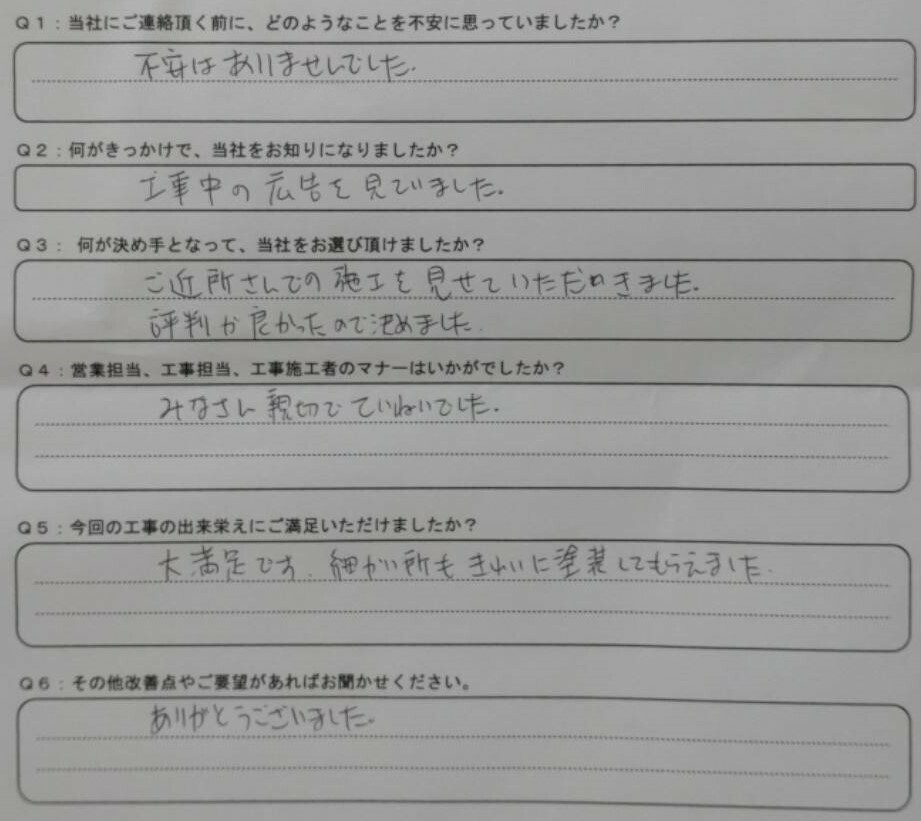 Q1：当社にご連絡頂く前に、どのようなことを不安に思っていましたか？
不安はありませんでした.
Q2：何がきっかけで、当社をお知りになりましたか？
工事中の広告を見ていました.
Q3： 何が決め手となって、当社をお選び頂けましたか？
ご近所さんでの施工を見せていただきました.
評判が良かったので決めました.
Q4：営業担当、工事担当、工事施工者のマナーはいかがでしたか？
みなさん親切でていねいでした.
Q5：今回の工事の出来栄えにご満足いただけましたか？
大満足です. 細かい所もきれいに塗装してもらえました.
Q6：その他改善点やご要望があればお聞かせください。
ありがとうございました.